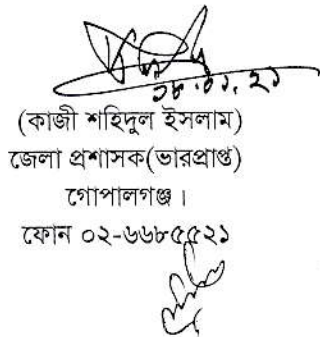 ১৮.০১.২১
(কাজী শহিদুল ইসলাম)
জেলা প্রশাসক(ভারপ্রাপ্ত)
গোপালগঞ্জ।
ফোন ০২-৬৬৮৫৫২১